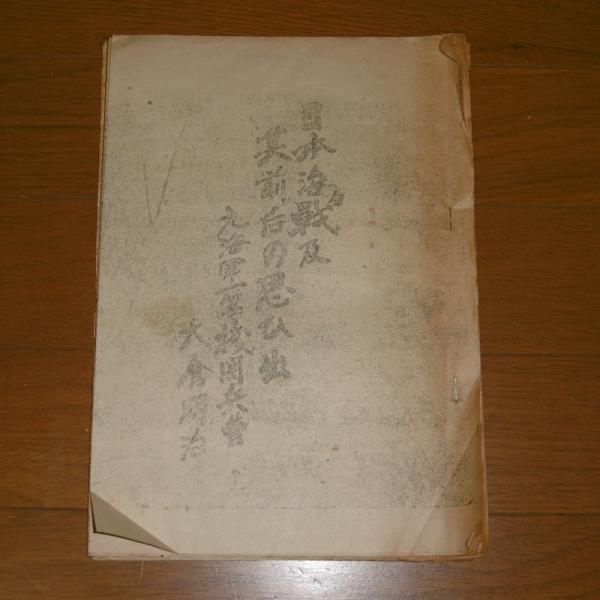 日本海々戦及
其前后の思ひ出
元海軍一等機関兵曹
大倉明治